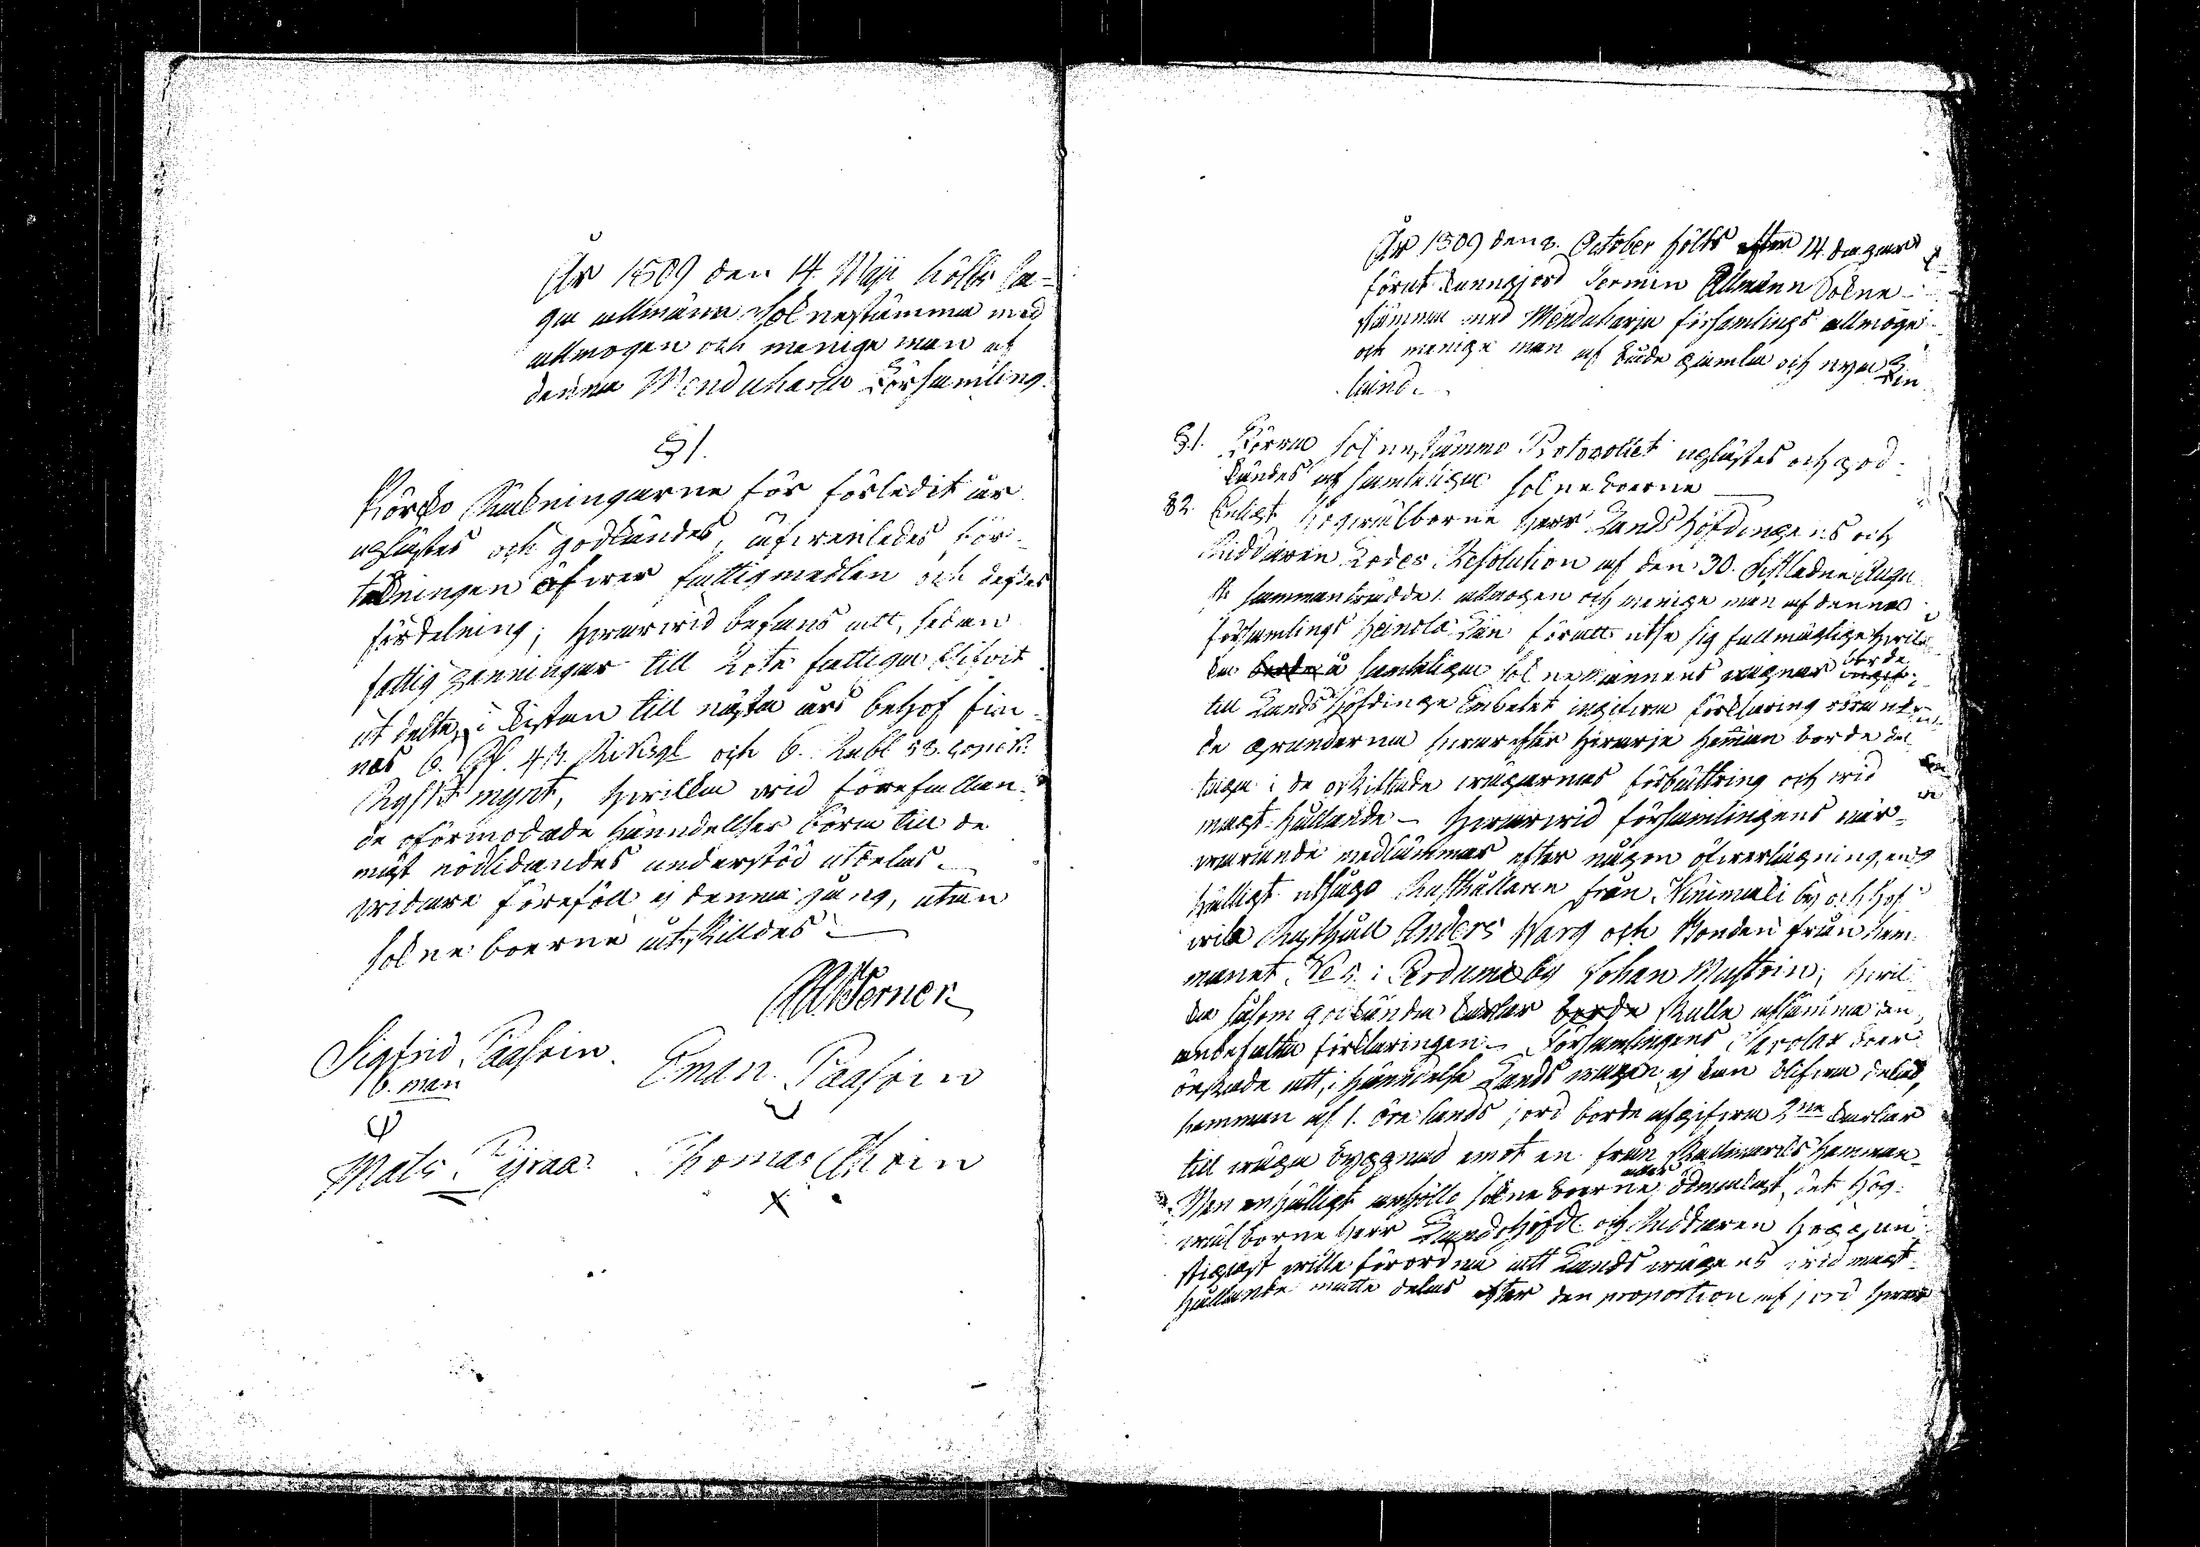 År 1809 den 14 Maji höllts la-
ga allmänn soknestämma med
allmogen och menige man af
denna Mänduharju Församling.
§ 1.
Kyrko Räkningarne för förledit år
uplästes och godkändes, äfwenledes för-
tekningen öfwer fattigmedlen och desses
fördelning; hwarwid befans att, sedan
fattig penningar till Rote fattiga blifvit
utdelte, i Kistan till nästa års behof fin-
nas 6. Rd. 4 s. Riksgl och 6. Rubl 53. copek
Ryskt mynt, hwilka wid förefallan-
de oförmodade händellser böra till de
mäst nödlidandes understöd utdelas.
Widare föreföll ej denna gång, utan
sokneboerne åtskilldes.
Werner
Sigfrid Paasoin Eman Paasoin
6. man
Mats Pijraa Thomas Ihoin
År 1809 den 8. October hölts efter 14 dagar
förut kunngjord Termin Allmänn Sokne-
stämma med Mänduharju församlings allmoge
och menige man af både gamla och nya Fin-
land.
§ 1. Förra sokne stämmo Protocollet uplästes och god-
kändes af samtelige sokneboerne
§ 2. Enligt Högwälborne Herr Landshöfdingens och
Riddaren Resolution af den 30. sistledne Augu-
sti sammanträdde allmogen och menige man af denna
församlings Heinola Län föratt utse sig fullmägtige hwil-
ka borde å samtelige soknemännens wägnar borde
till Landshöfdinge Embetet ingifwa förklaring röran-
de grunderna hwarefter hwarje hemman borde del-
taga i de oskiftade wägarnas förbättring och wid
magt hållande - hwarwid församlingens när-
warande medlämmar efter någon öfwerlägning, en-
hälligt utsågo Rusthållaren från Kinimäki by och
Rusthåll Anders Warg och Bonden från hem-
manet No 5 i Pertuma by Johan Mustoin, hwil-
ka såsom godkända karlar borde skulle afstämma den
anbefalta förklaringen. Församlingens boer
önskade att, i händelse Landswägen ej kan blifwa delad,
hemman af 1. öre lands jord borde afgifwa 2ne karlar
till wäga byggnad emot en från Hemman-
Men enhälligt anhöllo sokneboerne ödmiukast, det Hög-
wälborne Herr Landshöfd. och Riddaren höggun-
stigast wille förordna att Landswägens wid magt-
hållande måtte delas efter den proportion af jord hwar